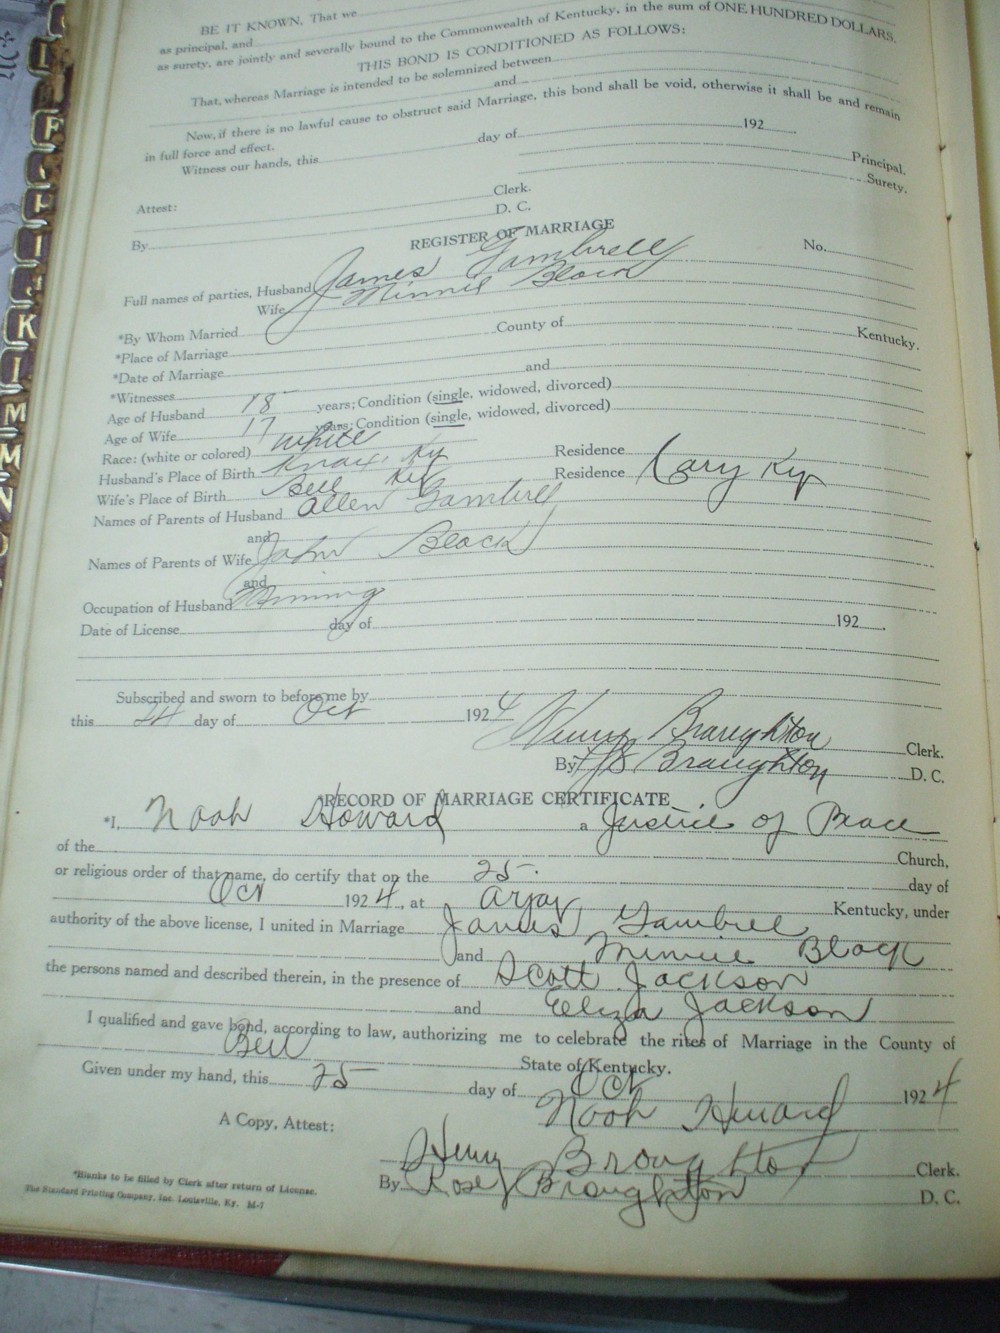 BE IT KNOWN, That we
as principal, and
as surety, are jointly and severally bound to the Commonwealth of Kentucky, in the sum of ONE HUNDRED DOLLARS.
THIS BOND IS CONDITIONED AS FOLLOWS:
That, whereas Marriage is intended to be solemnized between
and
Now, if there is no lawful cause to obstruct said Marriage, this bond shall be void, otherwise it shall be and remain
in full force and effect.
Witness our hands, this day of 192
Principal.
Surety.
Attest: Clerk.
By D. C.
REGISTER OF MARRIAGE
No.
Full names of parties, Husband James Gambrell
Wife Minnie Black
*By Whom Married
*Place of Marriage County of Kentucky.
*Date of Marriage
*Witnesses and
Age of Husband 18 years; Condition (single, widowed, divorced)
Age of Wife 17 years; Condition (single, widowed, divorced)
Race: (white or colored) White
Husband's Place of Birth Knox, Ky Residence
Wife's Place of Birth Bell Ky Residence Cary Ky
Names of Parents of Husband Allen Gambrell
and
Names of Parents of Wife John Black
and
Occupation of Husband Mining
Date of License day of 192
Subscribed and sworn to before me by
this 24 day of Oct 1924
Henry Braughton Clerk.
By Braughton D. C.
RECORD OF MARRIAGE CERTIFICATE
*I, Noah Howard a Justice of Peace
of the Church,
or religious order of that name, do certify that on the 25 day of
Oct 1924, at Arjay, Kentucky, under
authority of the above license, I united in Marriage James Gambrell
and Minnie Black
the persons named and described therein, in the presence of Scott Jackson
and Eliza Jackson
I qualified and gave bond, according to law, authorizing me to celebrate the rites of Marriage in the County of
Bell State of Kentucky.
Given under my hand, this 25 day of Oct 1924
Noah Howard
A Copy, Attest:
Henry Broughton Clerk.
By Rose Broughton D. C.
*Blanks to be filled by Clerk after return of License.
The Standard Printing Company, Inc. Louisville, Ky. M-7
F
H
I
J
K
M
N